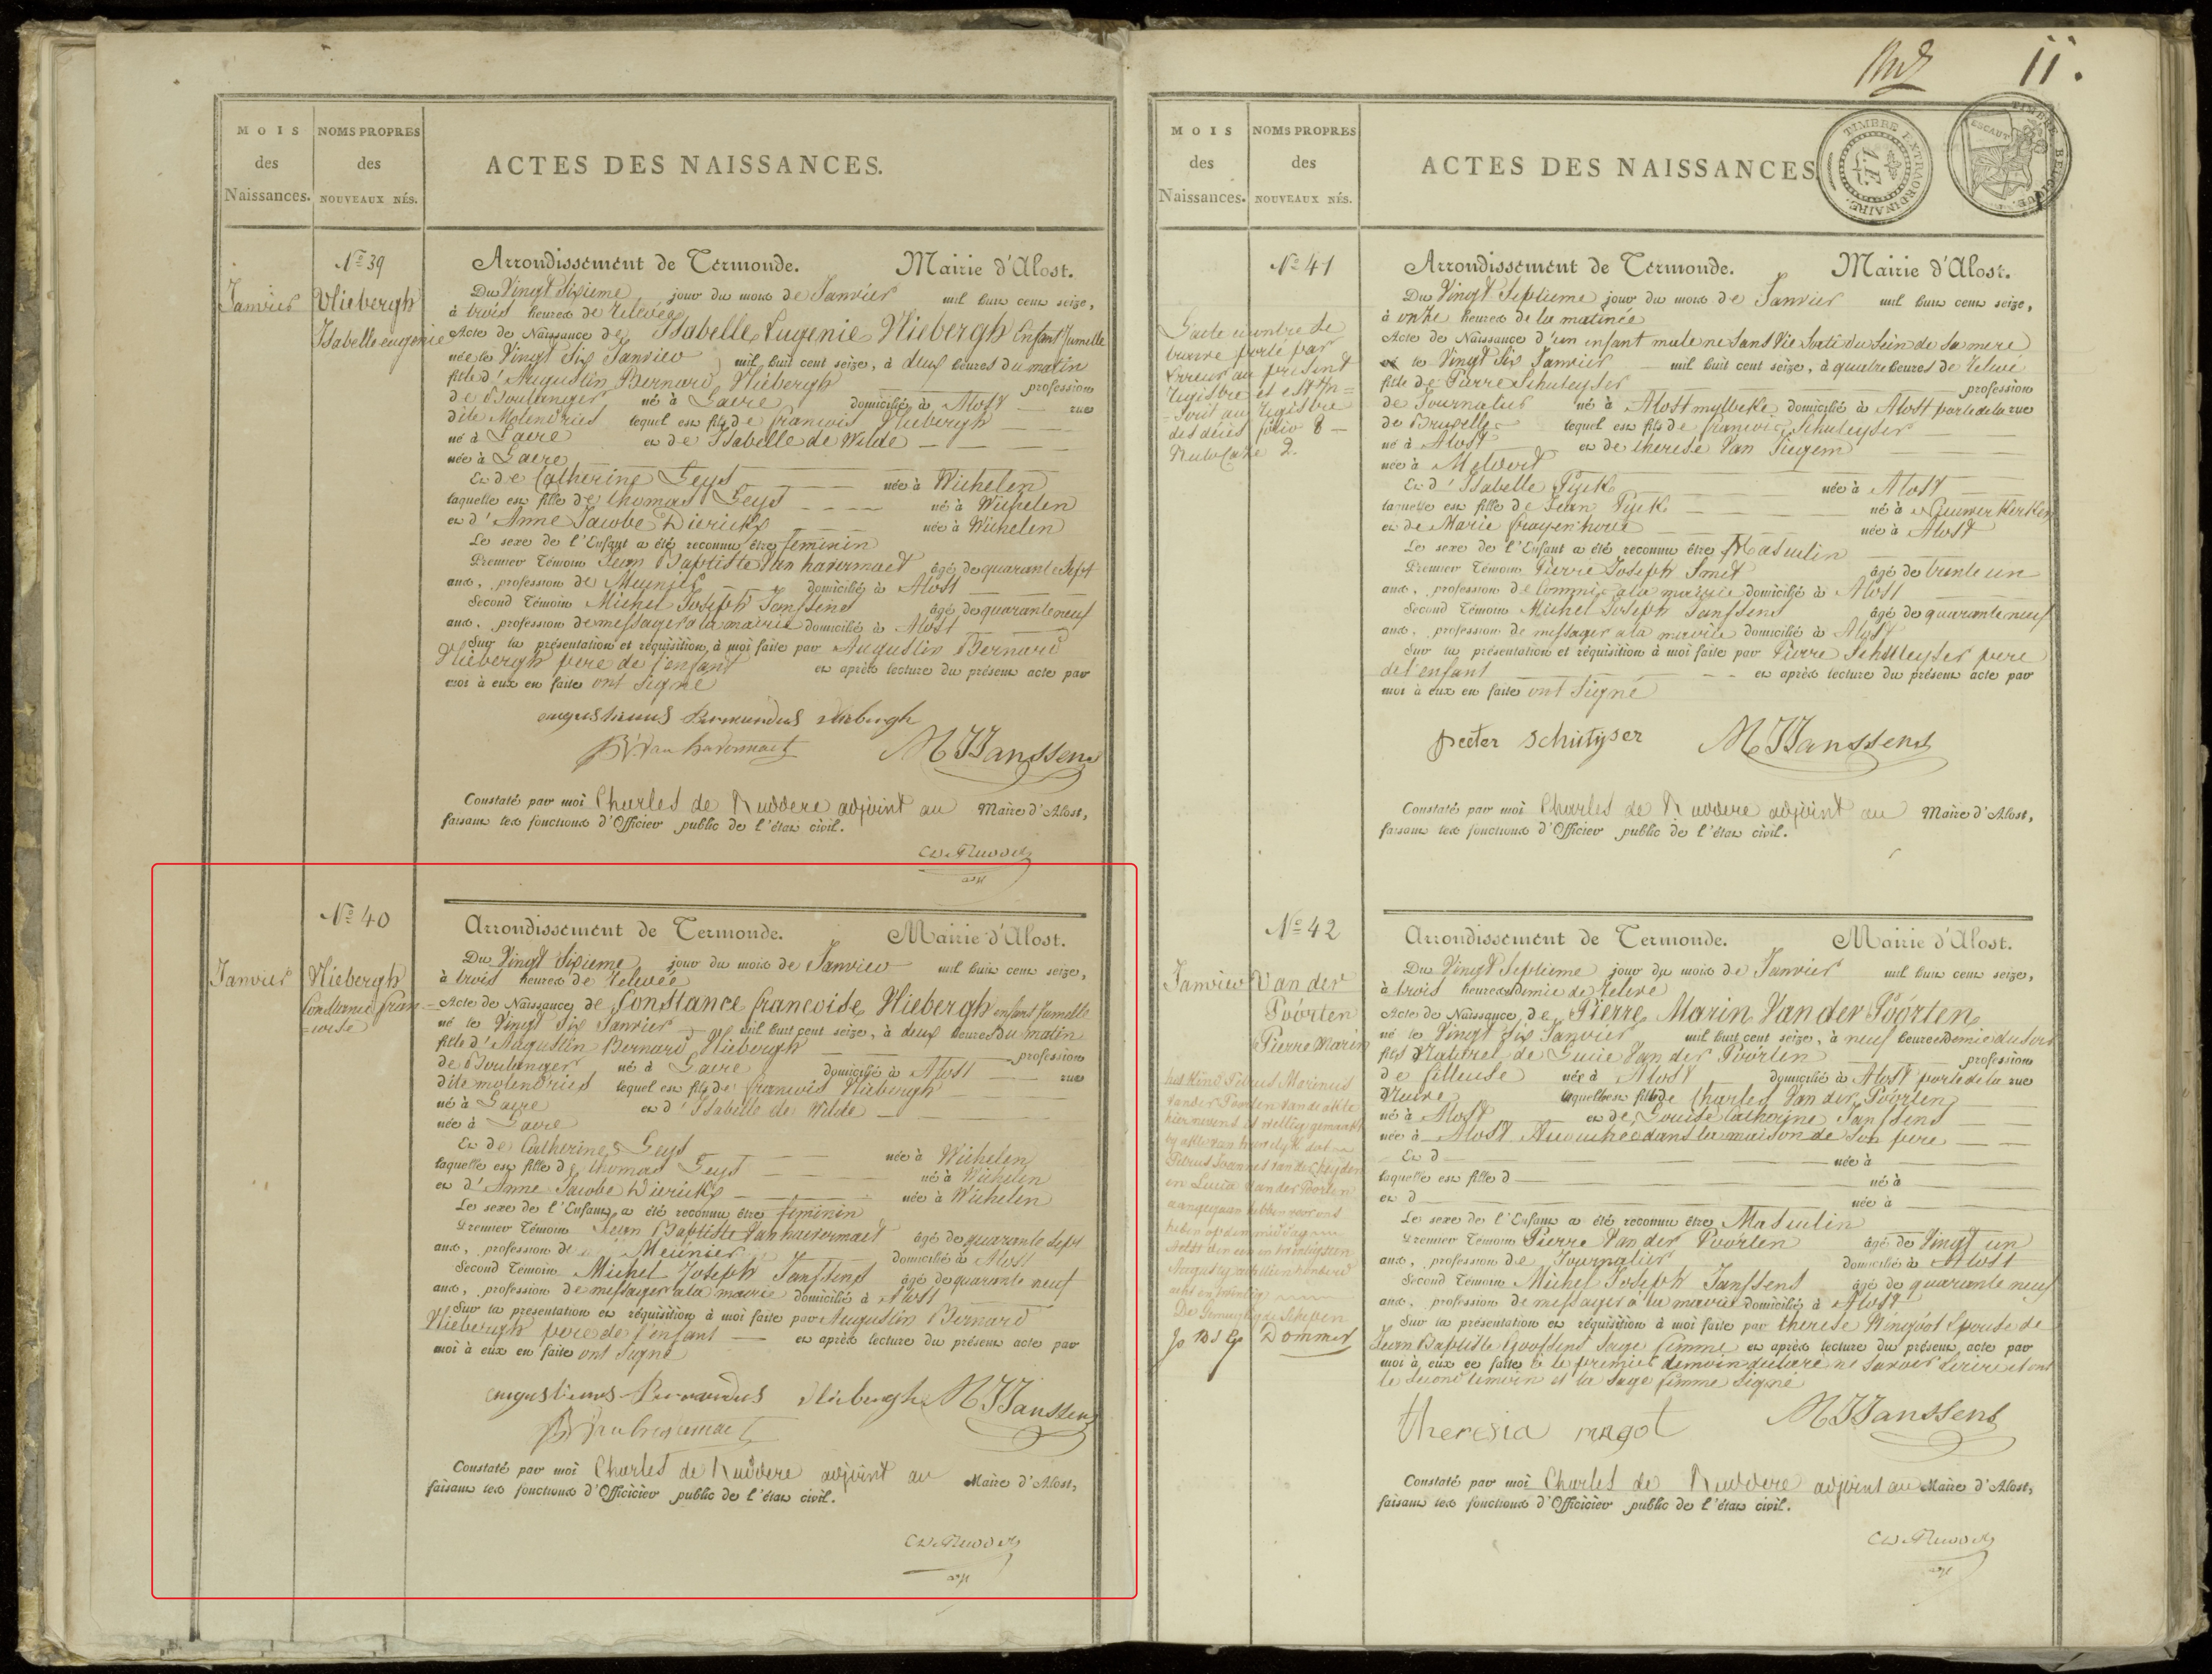 MOIS
des
Naissances.
NOMS PROPRES
des
NOUVEAUX NÉS.
ACTES DES NAISSANCES.
Nº 39
Janvier
Vliebergh
Isabelle eugenie
Arrondissement de Termonde. Mairie d'Alost.
Du Vingt Sixieme jour du mois de Janvier mil huit cent seize,
à trois heures de Relevée
Acte de Naissance de Isabelle Eugenie Vliebergh Enfant Jumelle
née le Vingt Six Janvier mil huit cent seize, à deux heures du matin
fille d'Augustin Bernard Vliebergh profession
de Boulanger né à Gavre domicilié à Alost rue
dite Molendries lequel est fils de francois Vliebergh
né à Gavre et de Isabelle de Wilde
née à Gavre
Et de Catherine Geys née à Wichelen
laquelle est fille de thomas Geys né à Wichelen
et d'Anne Jacobe Diericks née à Wichelen
Le sexe de l'Enfant a été reconnu être feminin
Premier Témoin Jean Baptiste Van havermaet âgé de quarante Sept
ans, profession de Meunier domicilié à Alost
Second Témoin Michel Joseph Janssens âgé de quarante neuf
ans, profession de messager a la mairie domicilié à Alost
Sur la présentation et réquisition à moi faite par Augustin Bernard
Vliebergh pere de l'enfant et après lecture du présent acte par
moi à eux en faite ont Signé
augustinus Bernardus vliebergh
Van havermaet MJJanssens
Constaté par moi Charles de Ruddere adjoint au Maire d'Alost,
faisant les fonctions d'Officier public de l'état civil.
Nº 40
Janvier
Vliebergh
Constance fran
=coise
Arrondissement de Termonde. Mairie d'Alost.
Du Vingt Sixieme jour du mois de Janvier mil huit cent seize,
à trois heures de Relevée
Acte de Naissance de Constance francoise Vliebergh enfant Jumelle
né le Vingt Six Janvier mil huit cent seize, à deux heures du matin
fille d'Augustin Bernard Vliebergh profession
de Boulanger né à Gavre domicilié à Alost rue
dite molendries lequel est fils de francois Vliebergh
né à Gavre et d'Isabelle de Wilde
née à Gavre
Et de Catherine Geys née à Wichelen
laquelle est fille de thomas Geys né à Wichelen
et d'Anne Jacobe Diericks née à Wichelen
Le sexe de l'Enfant a été reconnu être feminin
Premier Témoin Jean Baptiste Van havermaet âgé de quarante Sept
ans, profession de Meunier domicilié à Alost
Second Témoin Michel Joseph Janssens âgé de quarante neuf
ans, profession de messager a la mairie domicilié à Alost
Sur la présentation et réquisition à moi faite par Augustin Bernard
Vliebergh pere de l'enfant et après lecture du présent acte par
moi à eux en faite ont Signé
augustinus Bernardus vliebergh MJJanssens
Constaté par moi Charles de Ruddere adjoint au Maire d'Alost,
faisant les fonctions d'Officicier public de l'état civil.
11.
MOIS
des
Naissances.
NOMS PROPRES
des
NOUVEAUX NÉS.
ACTES DES NAISSANCES
TIMBRE EXTRAORDINAIRE.
TIMBRE BELGIQUE.
ESCAUT
Nº 41
L'acte contre se
trouve porté par
Erreur au présent
registre et est In=
=scrit au registre
des décès folio 8
2.
Arrondissement de Termonde. Mairie d'Alost.
Du Vingt Septieme jour du mois de Janvier mil huit cent seize,
à onze heures de la matinée
Acte de Naissance d'un enfant male né Sans Vie Sorti du Sein de Sa mere
le Vingt Six Janvier mil huit cent seize, à quatre heures de relevé
fils de Pierre Schuteyser profession
de Journalier né à Alost mylbeke domicilié à Alost porte de la rue
de Bruxelles lequel est fils de francois Schuteyser
né à Alost et de therese Van Siegem
née à Meldert
Et d'Isabelle Pyck née à Alost
laquelle est fille de Jean Pyck né à Nieuwerkerken
et de Marie née à Alost
Le sexe de l'Enfant a été reconnu être Masculin
Premier Témoin Pierre Joseph Smet âgé de trente un
ans, profession de Commis a la mairie domicilié à Alost
Second Témoin Michel Joseph Janssens âgé de quarante neuf
ans, profession de messager a la mairie domicilié à Alost
Sur la présentation et réquisition à moi faite par Pierre Schuteyser pere
de l'enfant et après lecture du présent acte par
moi à eux en faite ont Signé
peeter schutyser MJJanssens
Constaté par moi Charles de Ruddere adjoint au Maire d'Alost,
faisant les fonctions d'Officier public de l'état civil.
Nº 42
Janvier
Van der
Poorten
Pierre Marin
het kind Petrus Marinus
vander Poorten van de akte
hiernevens is wettig gemaakt
by akte van huwelyk dat
Petrus Joannes van der heyden
en Lucia van der Poorten
aangegaan hebben voor ons
heden op den middag
Aelst den een en twintigsten
Augusty achttien honderd
acht en twintig
De Schepen
Dommer
Arrondissement de Termonde. Mairie d'Alost.
Du Vingt Septieme jour du mois de Janvier mil huit cent seize,
à trois heures & demie de relevé
Acte de Naissance de Pierre Marin Van der Poorten
né le Vingt Six Janvier mil huit cent seize, à neuf heures & demie du soir
fils Naturel de Lucie Van der Poorten profession
de fileuse née à Alost domicilié à Alost porte de la rue
Neuve laquelle est fille de Charles Van der Poorten
né à Alost et de Louise Catherine Janssens
née à Alost Accouchée dans la maison de Son pere
Et d née à
laquelle est fille d né à
et d née à
Le sexe de l'Enfant a été reconnu être Masculin
Premier Témoin Pierre Van der Poorten âgé de Vingt un
ans, profession de Journalier domicilié à Alost
Second Témoin Michel Joseph Janssens âgé de quarante neuf
ans, profession de messager a la mairie domicilié à Alost
Sur la présentation et réquisition à moi faite par therese Epouse de
Jean Baptiste Goossens Sage femme et après lecture du présent acte par
moi à eux en faite le premier temoin déclaré ne Savoir Ecrire et ont
le Second temoin et la Sage femme Signé
theresia MJJanssens
Constaté par moi Charles de Ruddere adjoint au Maire d'Alost,
faisant les fonctions d'Officicier public de l'état civil.